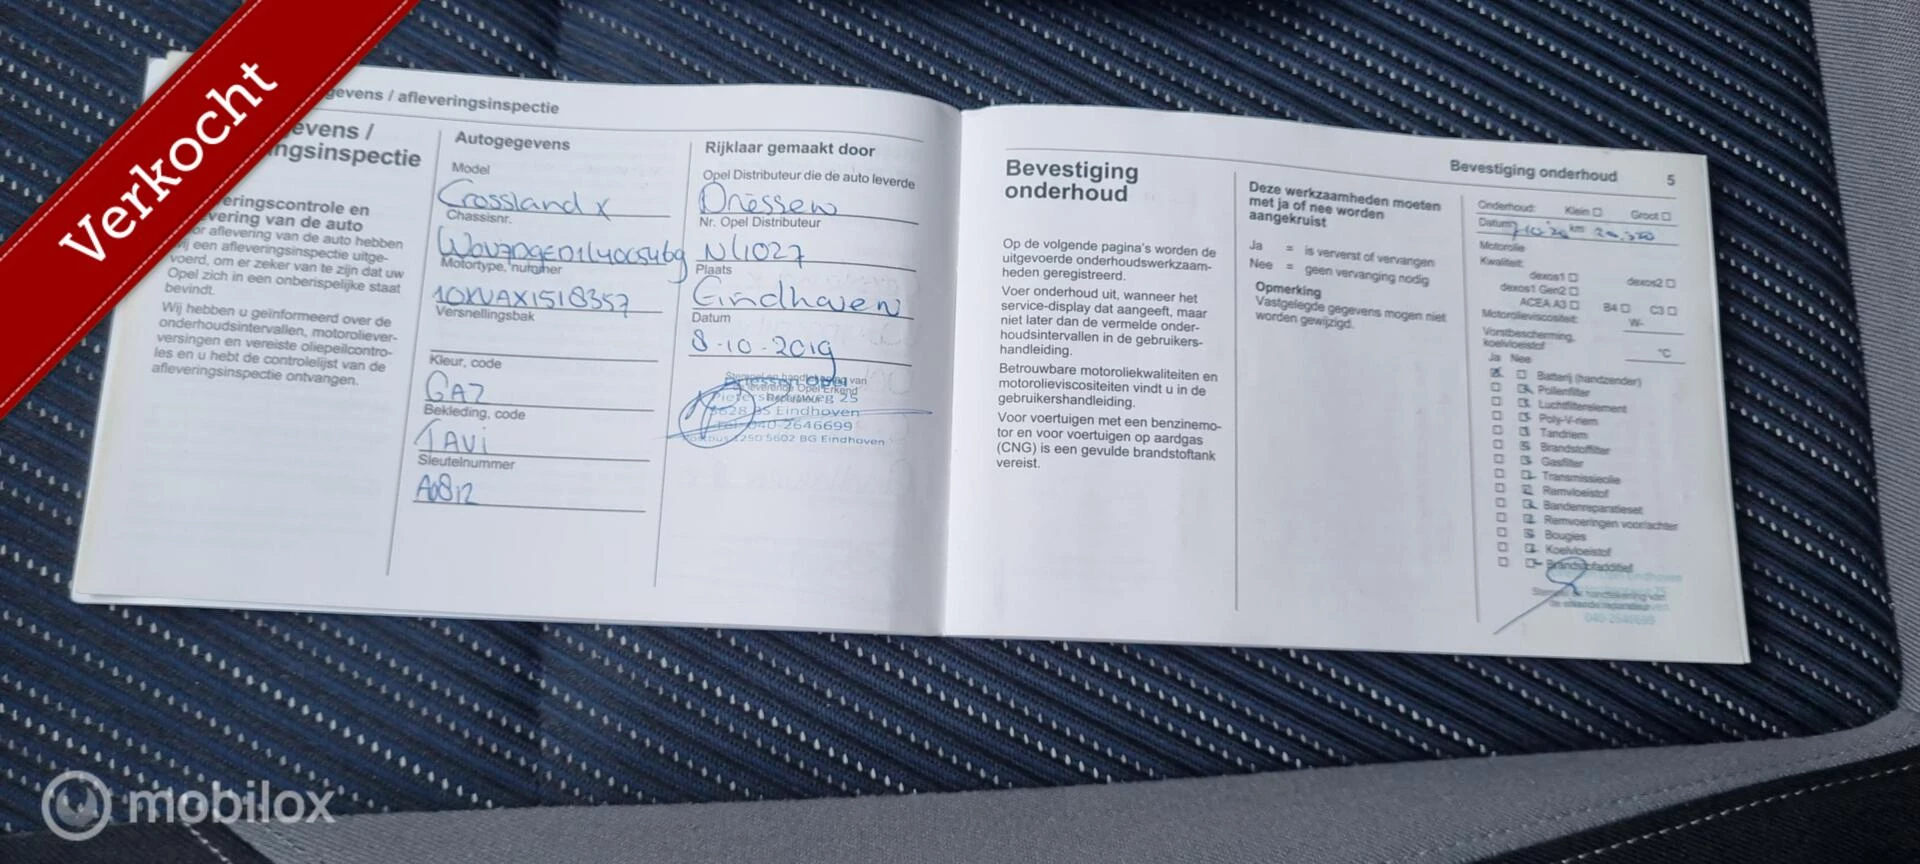 Verkocht
gevens / afleveringsinspectie
evens /
ngsinspectie
eringscontrole en
vering van de auto
or aflevering van de auto hebben
wij een afleveringsinspectie uitge-
voerd, om er zeker van te zijn dat uw
Opel zich in een onberispelijke staat
bevindt.
Wij hebben u geïnformeerd over de
onderhoudsintervallen, motoroliever-
versingen en vereiste oliepeilcontro-
les en u hebt de controlelijst van de
afleveringsinspectie ontvangen.
Autogegevens
Model
Crossland X
Chassisnr.
Motortype, nummer
10XVAX1518357
Versnellingsbak
Kleur, code
GAZ
Bekleding, code
TAVI
Sleutelnummer
A0812
Rijklaar gemaakt door
Opel Distributeur die de auto leverde
Driessen
Nr. Opel Distributeur
NL1027
Plaats
Eindhoven
Datum
8-10-2019
Stempel en handtekening van
Driessen Opel
leverende Opel Erkend
Reparateur
25
5628 BS Eindhoven
Tel. 040-2646699
Postbus 1250 5602 BG Eindhoven
Bevestiging
onderhoud
Op de volgende pagina's worden de
uitgevoerde onderhoudswerkzaam-
heden geregistreerd.
Voer onderhoud uit, wanneer het
service-display dat aangeeft, maar
niet later dan de vermelde onder-
houdsintervallen in de gebruikers-
handleiding.
Betrouwbare motoroliekwaliteiten en
motorolieviscositeiten vindt u in de
gebruikershandleiding.
Voor voertuigen met een benzinemo-
tor en voor voertuigen op aardgas
(CNG) is een gevulde brandstoftank
vereist.
Deze werkzaamheden moeten
met ja of nee worden
aangekruist
Ja = is ververst of vervangen
Nee = geen vervanging nodig
Opmerking
Vastgelegde gegevens mogen niet
worden gewijzigd.
Bevestiging onderhoud 5
Onderhoud: Klein Groot
Datum 7-10-20 km
Motorolie
Kwaliteit:
dexos1 dexos2
dexos1 Gen2
ACEA A3 B4 C3
Motorolieviscositeit: W-
Vorstbescherming,
koelvloeistof °C
Ja Nee
Batterij (handzender)
Pollenfilter
Luchtfilterelement
Poly-V-riem
Tandriem
Brandstoffilter
Gasfilter
Transmissieolie
Remvloeistof
Bandenreparatieset
Remvoeringen voor/achter
Bougies
Koelvloeistof
Brandstofadditief
Eindhoven
Stempel en handtekening van
de erkende reparateur
040-2646699
mobilox